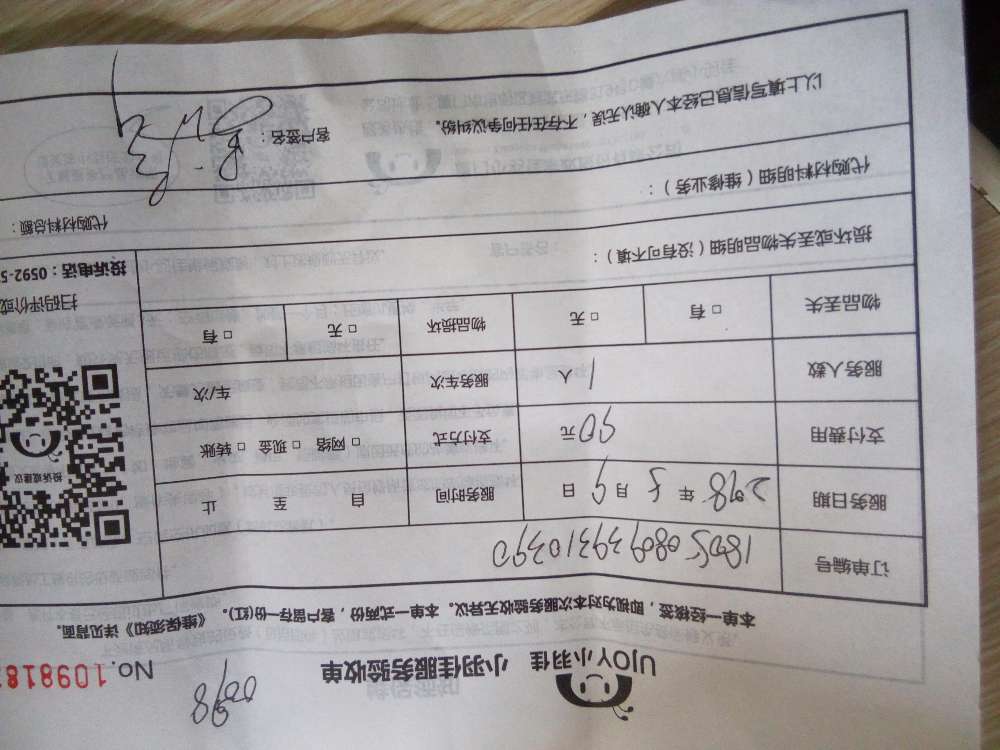 UJOY小羽佳 小羽佳服务验收单 No.109818
本单一经核签，即视为对本次服务验收无异议。本单一式两份，客户留存一份(红)。《维保须知》详见背面。
订单编号
服务日期 年 5 月 9 日 服务时间 自 至 止
支付费用 90元 支付方式 □ 网络 □ 现金 □ 转账
服务人数 1 人 服务车次 车/次
物品丢失 □ 有 □ 无 物品损坏 □ 无 □ 有
投诉或建议
扫码评价或
投诉电话：0592-5
损坏或丢失物品明细（没有可不填）：
代购材料明细（维修业务）：
代购材料总额：
以上填写信息已经本人确认无误，不存在任何争议纠纷。
客户签名：